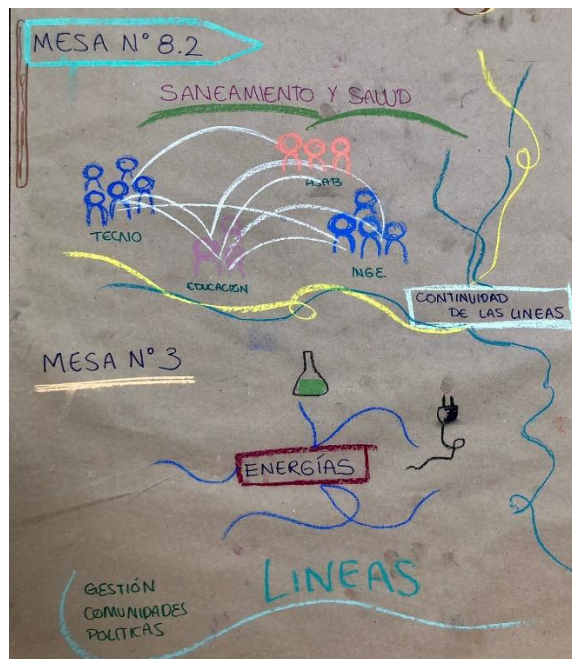 MESA N° 8.2
SANEAMIENTO Y SALUD
ASAB
TECNIO
INGE.
EDUCACIÓN
CONTINUIDAD
DE LAS LINEAS
MESA N° 3
ENERGÍAS
LINEAS
GESTIÓN
COMUNIDADES
POLITICAS